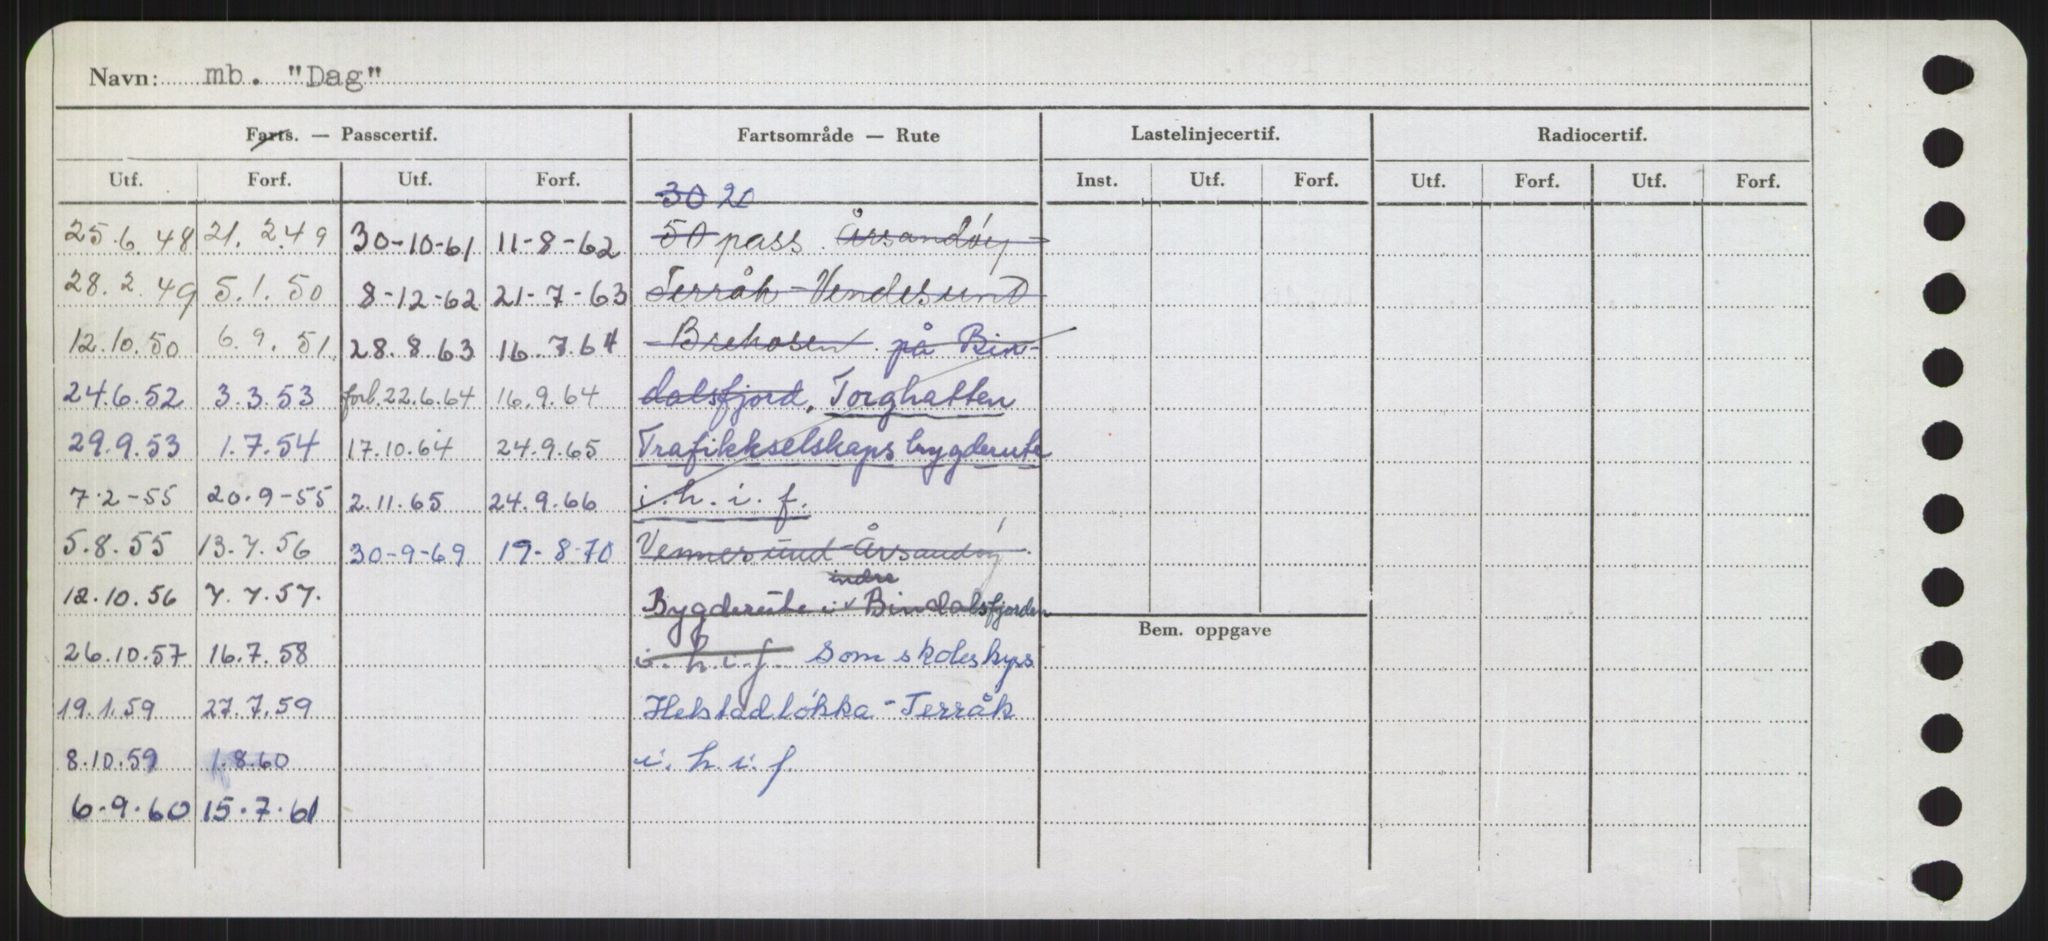 Navn: mb. "Dag"
Farts. — Passcertif. Fartsområde — Rute Lastelinjecertif. Radiocertif.
Utf. Forf. Utf. Forf. 30 20 Inst. Utf. Forf. Utf. Forf. Utf. Forf.
25.6.48 21.2.49 30-10-61 11-8-62 50 pass. Årsandøy
28.2.49 5.1.50 8-12-62 21-7-63 Terråk - Vendesund
12.10.50 6.9.51. 28.8.63 16.7.64 - Brekosen på Bin-
24.6.52 3.3.53 forl. 22.6.64 16.9.64 dalsfjord. Torghatten
29.9.53 1.7.54 17.10.64 24.9.65 Trafikkselskaps bygderute
7.2-55 20.9-55 2.11.65 24.9.66 i.h.i.f.
5.8.55 13.7.56 30-9-69 19-8-70 Vennesund - Årsandøy
indre
12.10.56 7.7.57. Bygderute i Bindalsfjorden
Bem. oppgave
26.10.57 16.7.58 i.h.i.f. Som skoleskyss
19.1.59 27.7.59 Helstadløkka - Terråk
8.10.59 1.8.60 i.h.i.f
6-9-60 15.7.61